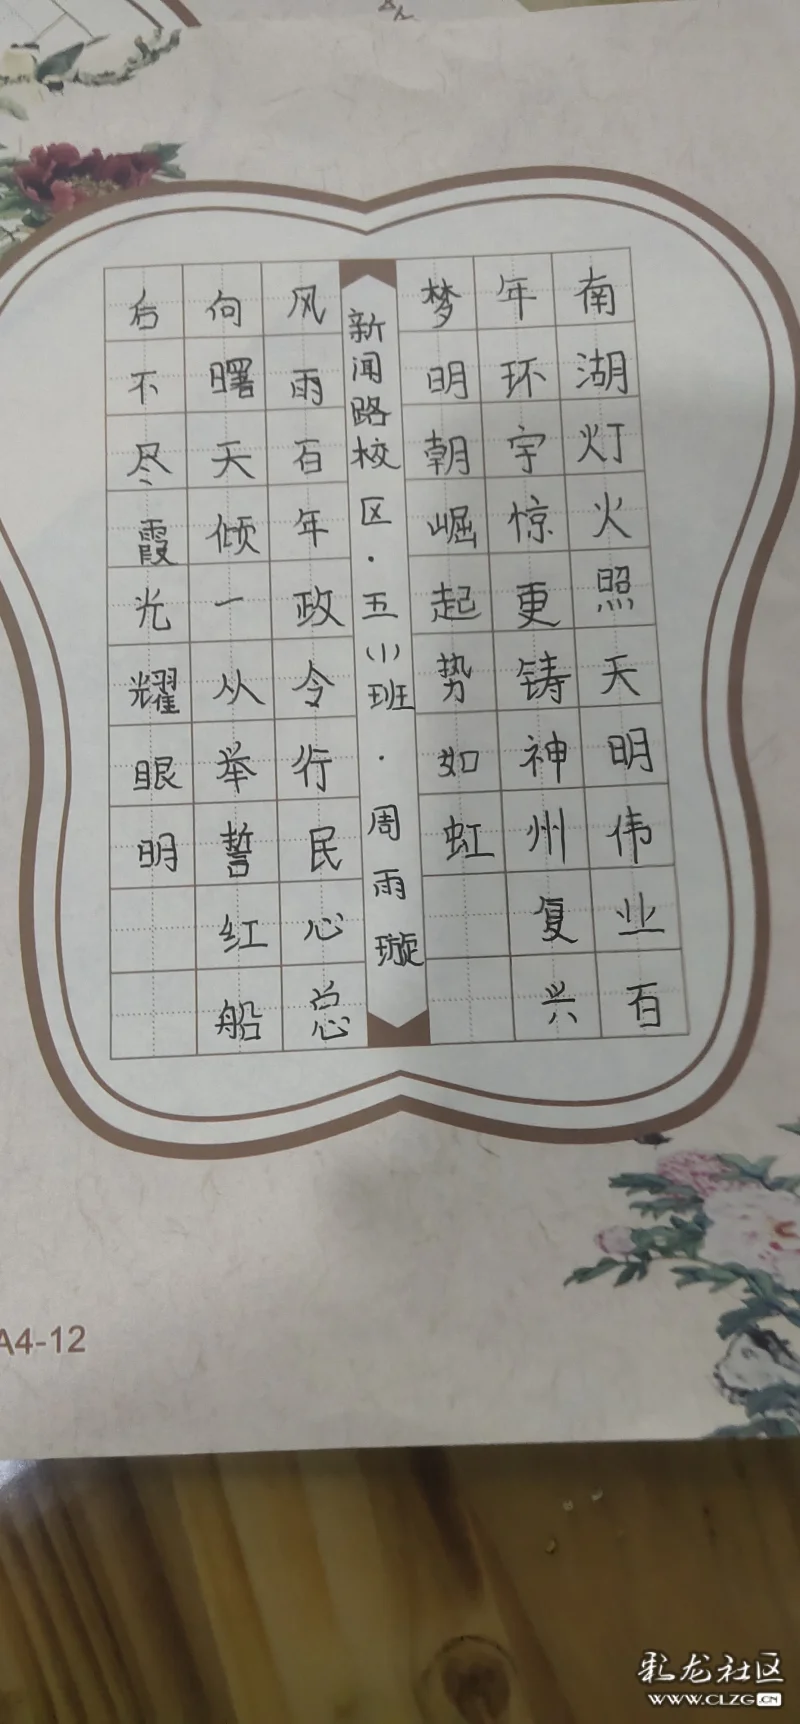 南湖灯火照天明伟业百
年环宇惊更铸神州复兴
梦明朝崛起势如虹
新闻路校区·五(1)班·周雨璇
风雨百年政令行民心总
向曙天倾一从举誓红船
后不尽霞光耀眼明
A4-12
彩龙社区
WWW.CLZG.CN